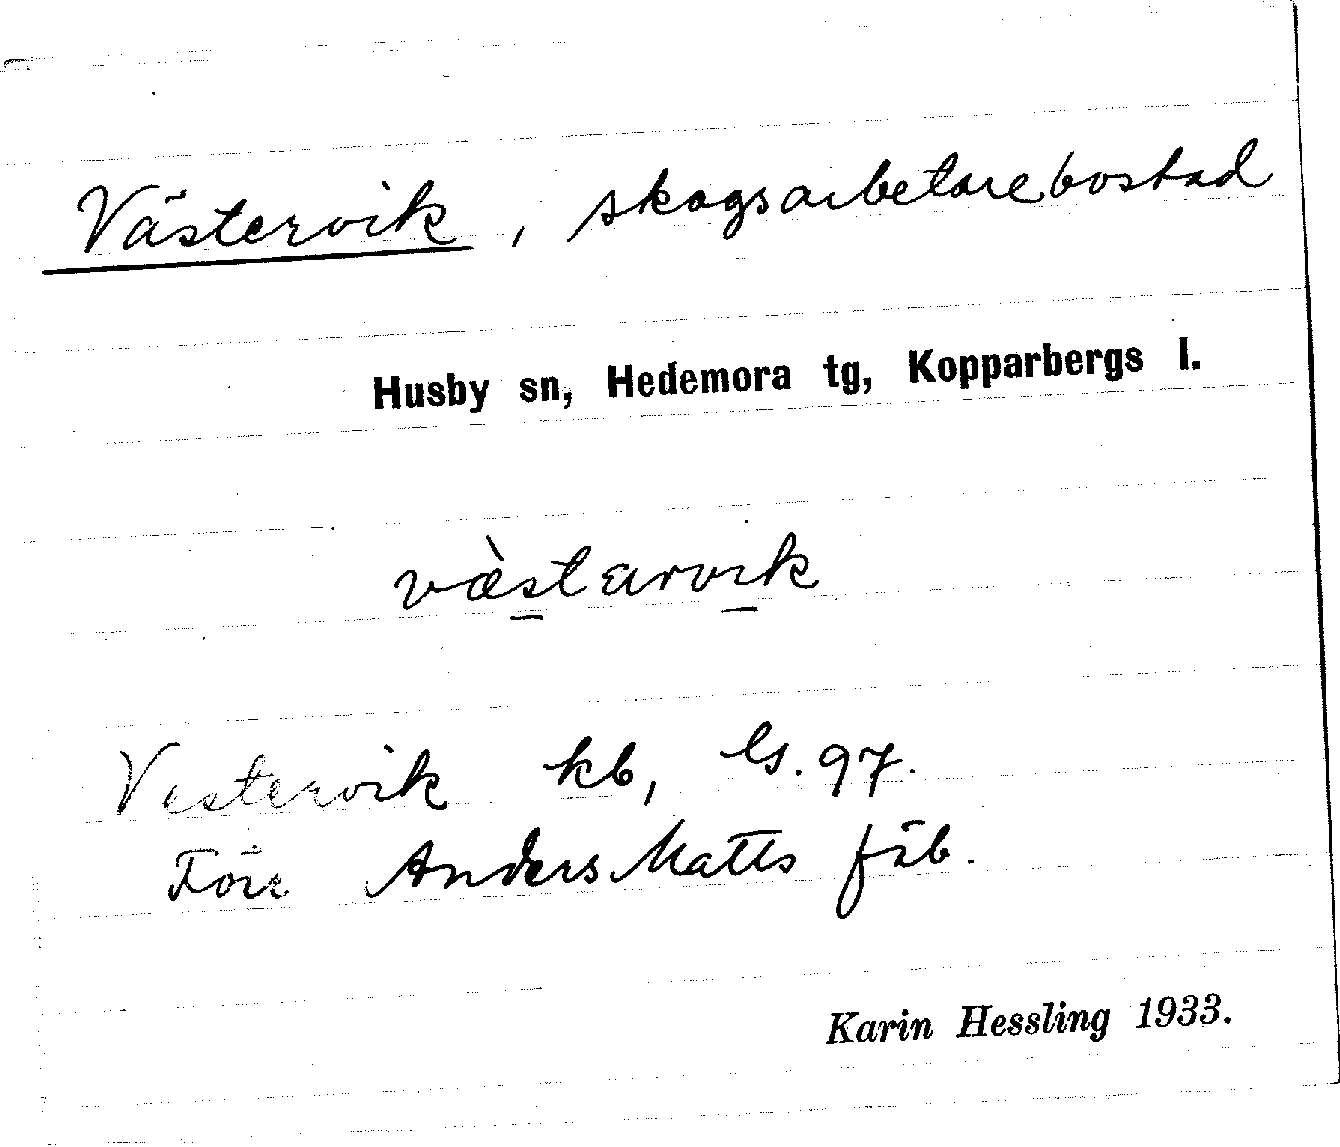 Västervik, skogsarbetarebostad
Husby sn, Hedemora tg, Kopparbergs l.
væ̀starvik
Vestervik kb, Gs. 97.
Förr Anders Matts fäb.
Karin Hessling 1933.